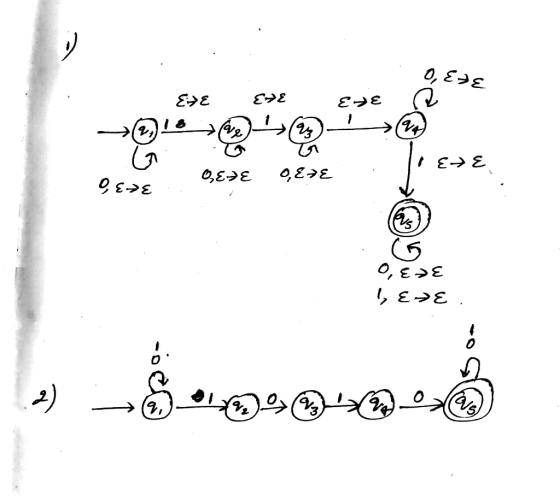 1)
0, ε→ε
ε→ε ε→ε ε→ε
q₁ 1 q₂ 1 q₃ 1 q₄
0, ε→ε 0, ε→ε 0, ε→ε
1 ε→ε
q₅
0, ε→ε
1, ε→ε
1 1
0 0
2) q₁ 1 q₂ 0 q₃ 1 q₄ 0 q₅